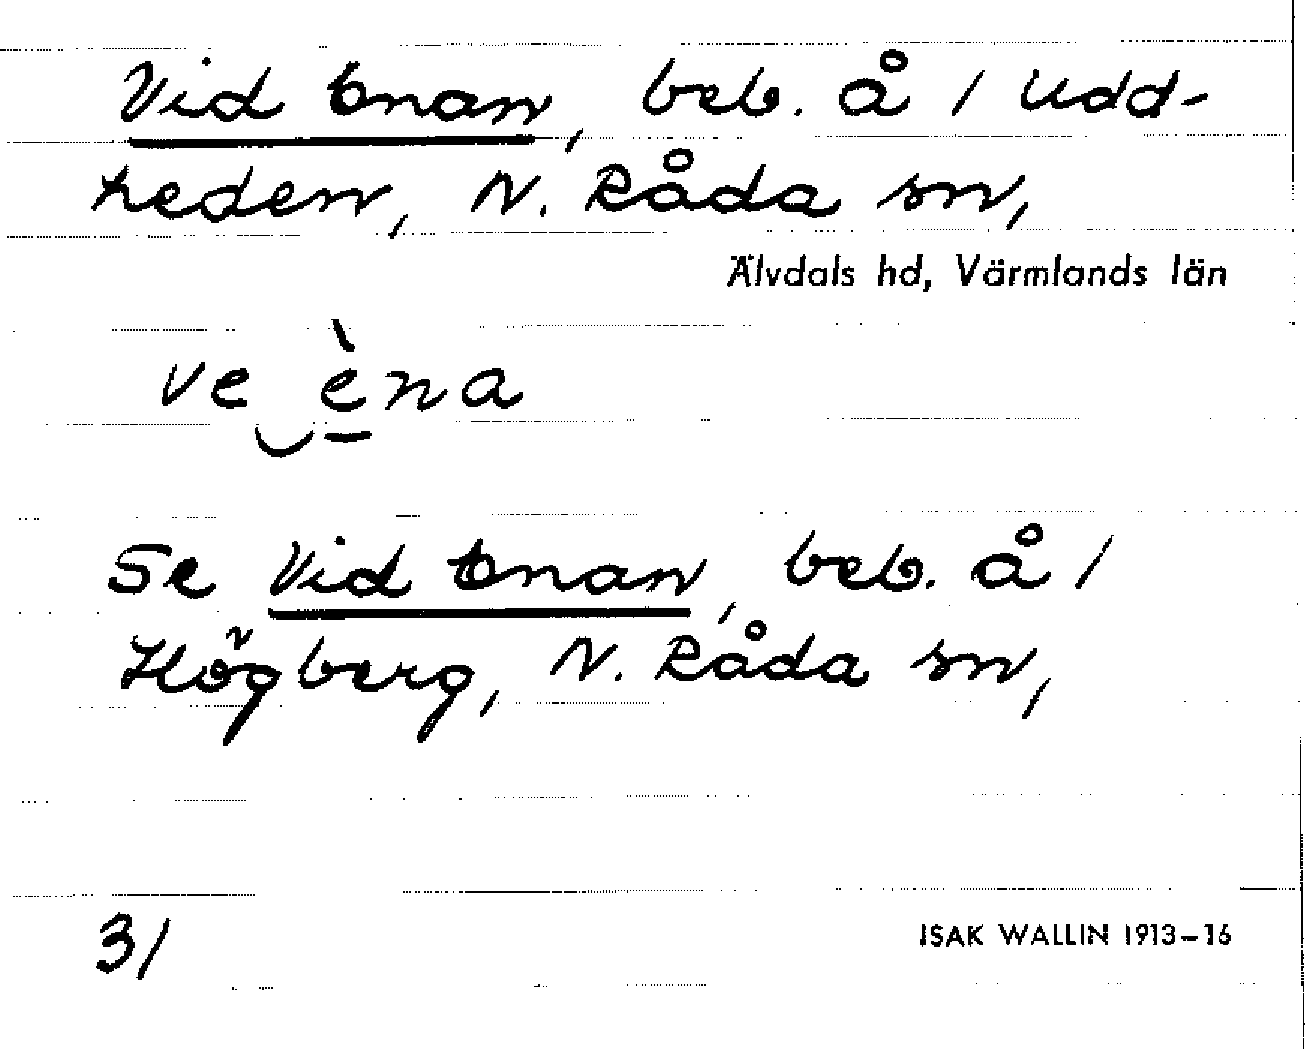 Vid Enan, beb. å 1 Udd-
heden, N. Råda sn,
Älvdals hd, Värmlands län
ve‿èna
Se Vid Enan, beb. å 1
Högberg, N. Råda sn,
31
ISAK WALLIN 1913–16